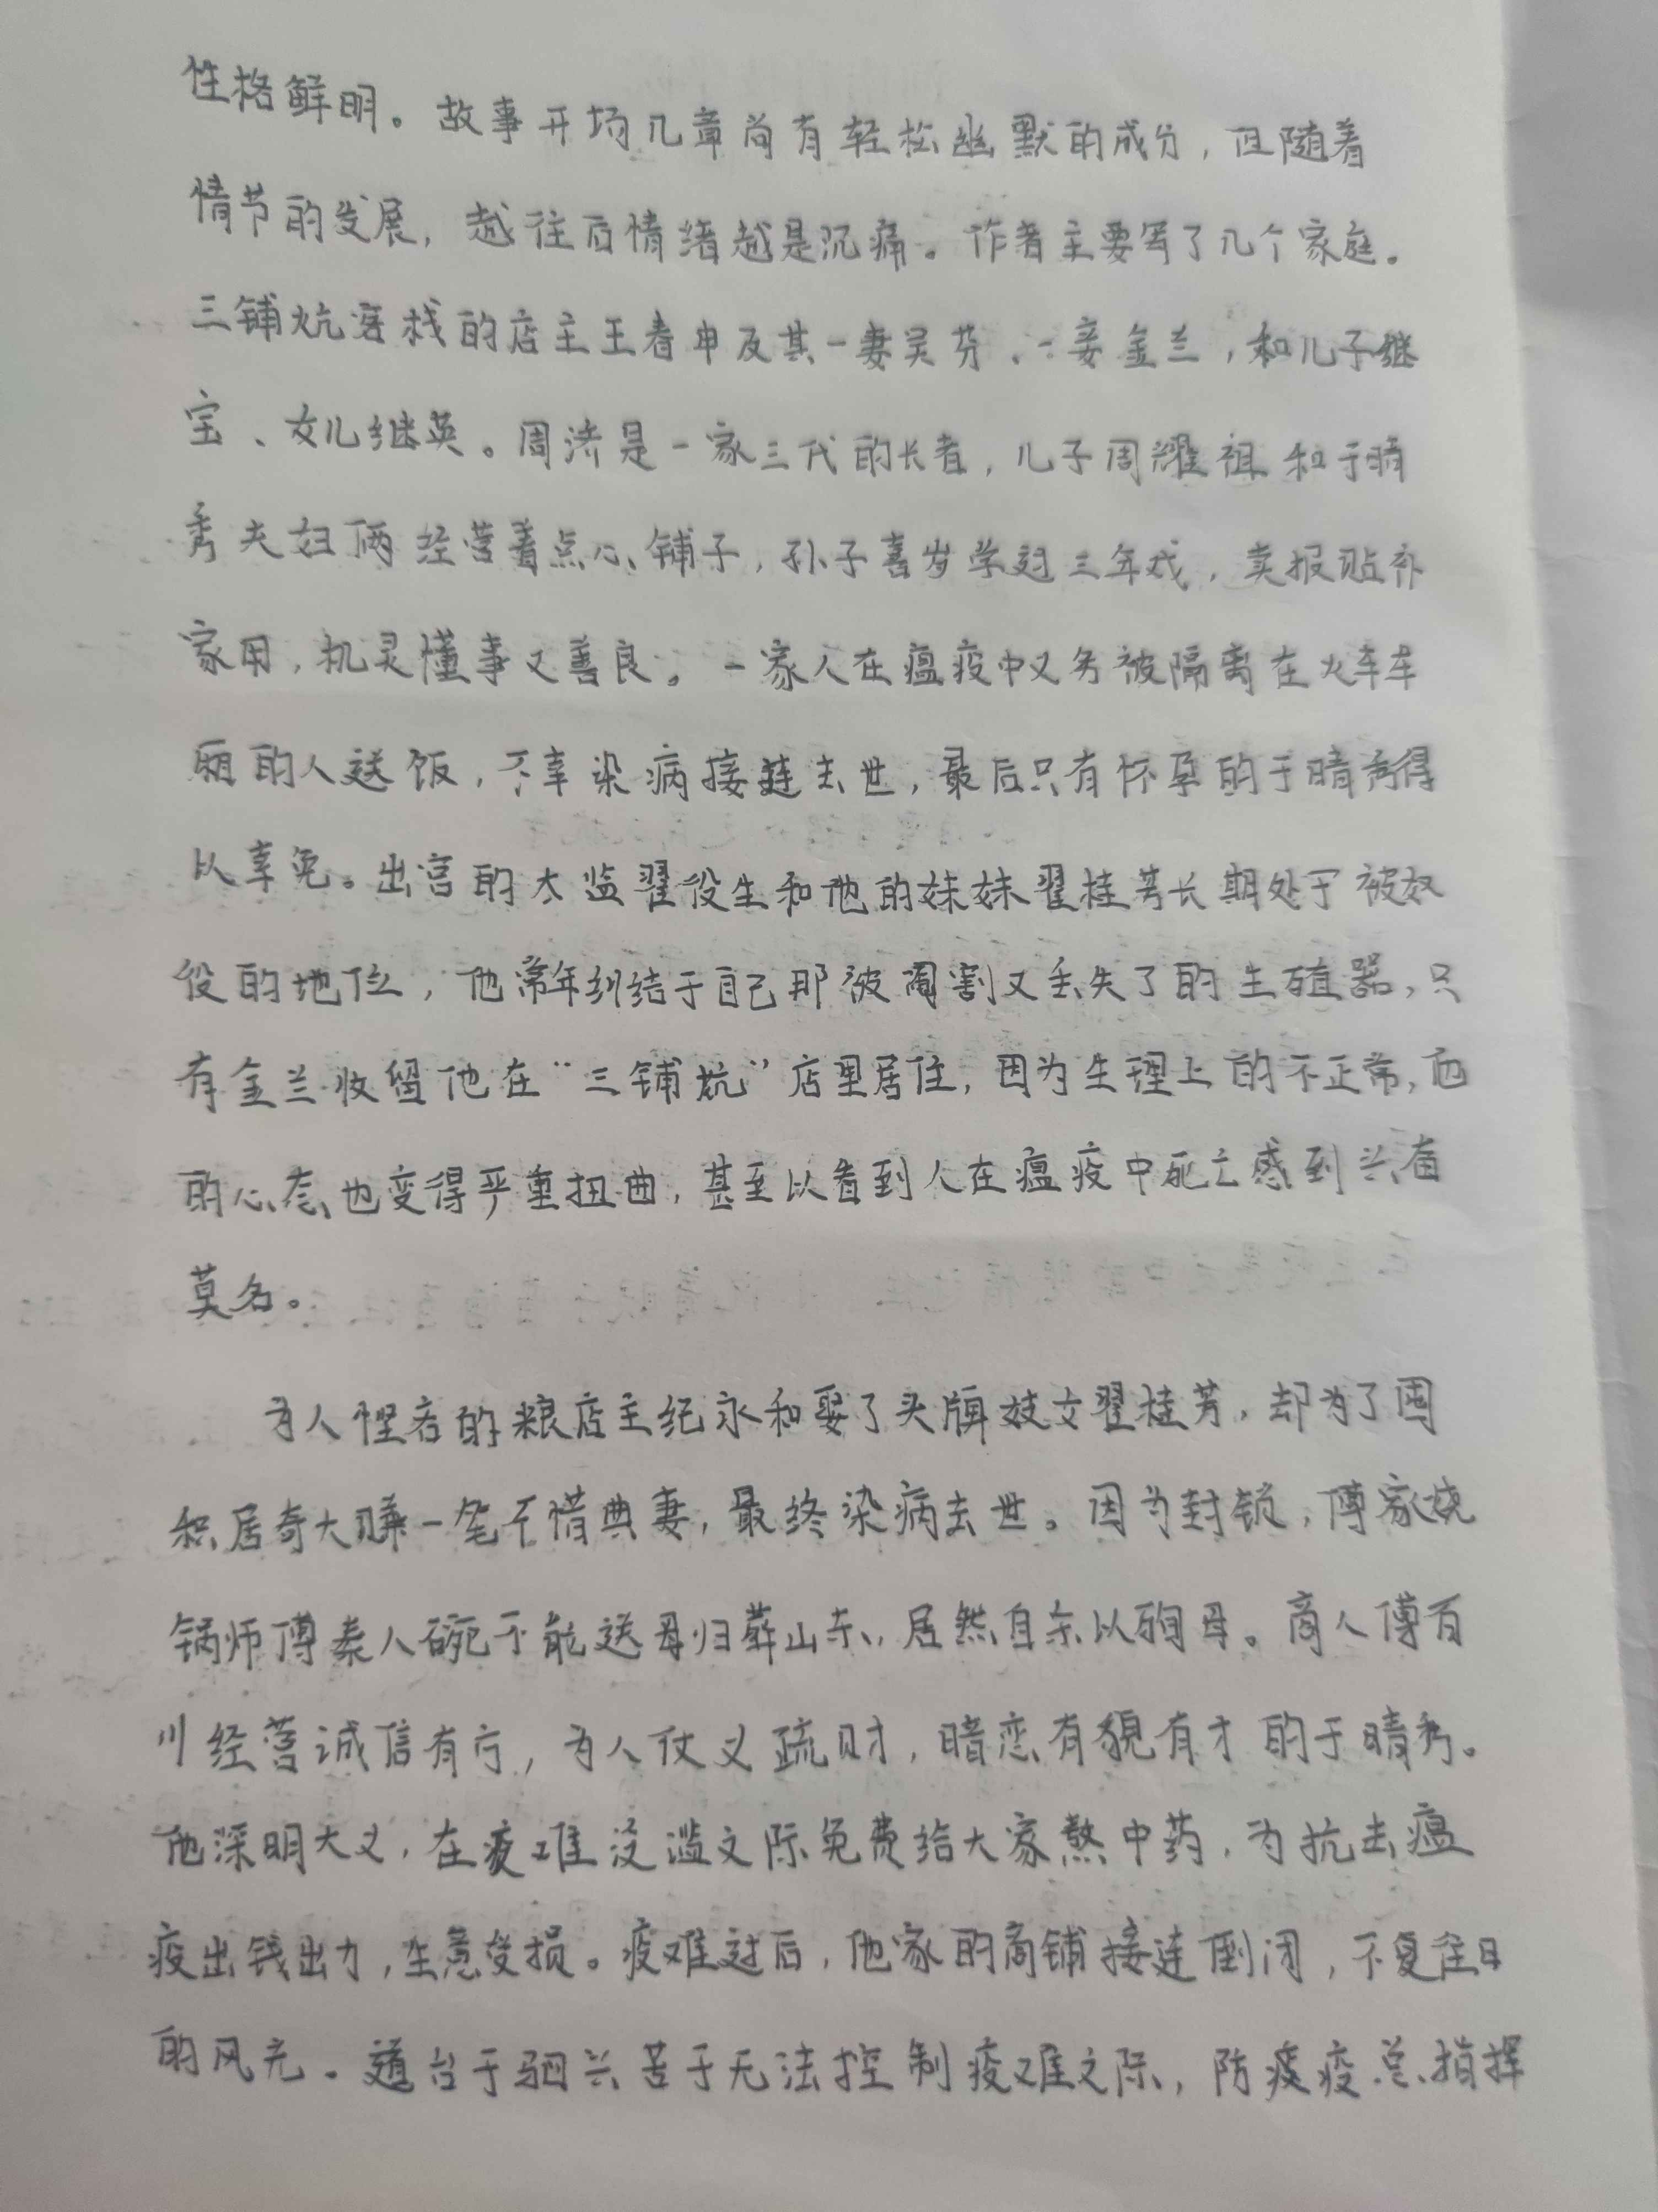 性格鲜明。故事开场几章尚有轻松幽默的成分，但随着
情节的发展，越往后情绪越是沉痛。作者主要写了几个家庭。
三铺炕客栈的店主王春申及其一妻吴芬、一妾金兰，和儿子继
宝、女儿继英。周济是一家三代的长者，儿子周耀祖和于晴
秀夫妇俩经营着点心铺子，孙子喜岁学过三年戏，卖报贴补
家用，机灵懂事又善良。一家人在瘟疫中义务被隔离在火车车
厢的人送饭，不幸染病接连去世，最后只有怀孕的于晴秀得
以幸免。出宫的太监翟役生和他的妹妹翟桂芳长期处于被奴
役的地位，他常年纠结于自己那被阉割又丢失了的生殖器，只
有金兰收留他在“三铺炕”店里居住，因为生理上的不正常，他
的心态也变得严重扭曲，甚至以看到人在瘟疫中死亡感到兴奋
莫名。
为人悭吝的粮店主纪永和娶了头牌妓女翟桂芳，却为了囤
积居奇大赚一笔不惜典妻，最终染病去世。因为封锁，傅家烧
锅师傅秦八碗不能送母归葬山东，居然自杀以殉母。商人傅百
川经营诚信有方，为人仗义疏财，暗恋有貌有才的于晴秀。
他深明大义，在疫难泛滥之际免费给大家熬中药，为抗击瘟
疫出钱出力，生意受损。疫难过后，他家的商铺接连倒闭，不复往日
的风光。道台于驷兴苦于无法控制疫难之际，防疫疫总指挥